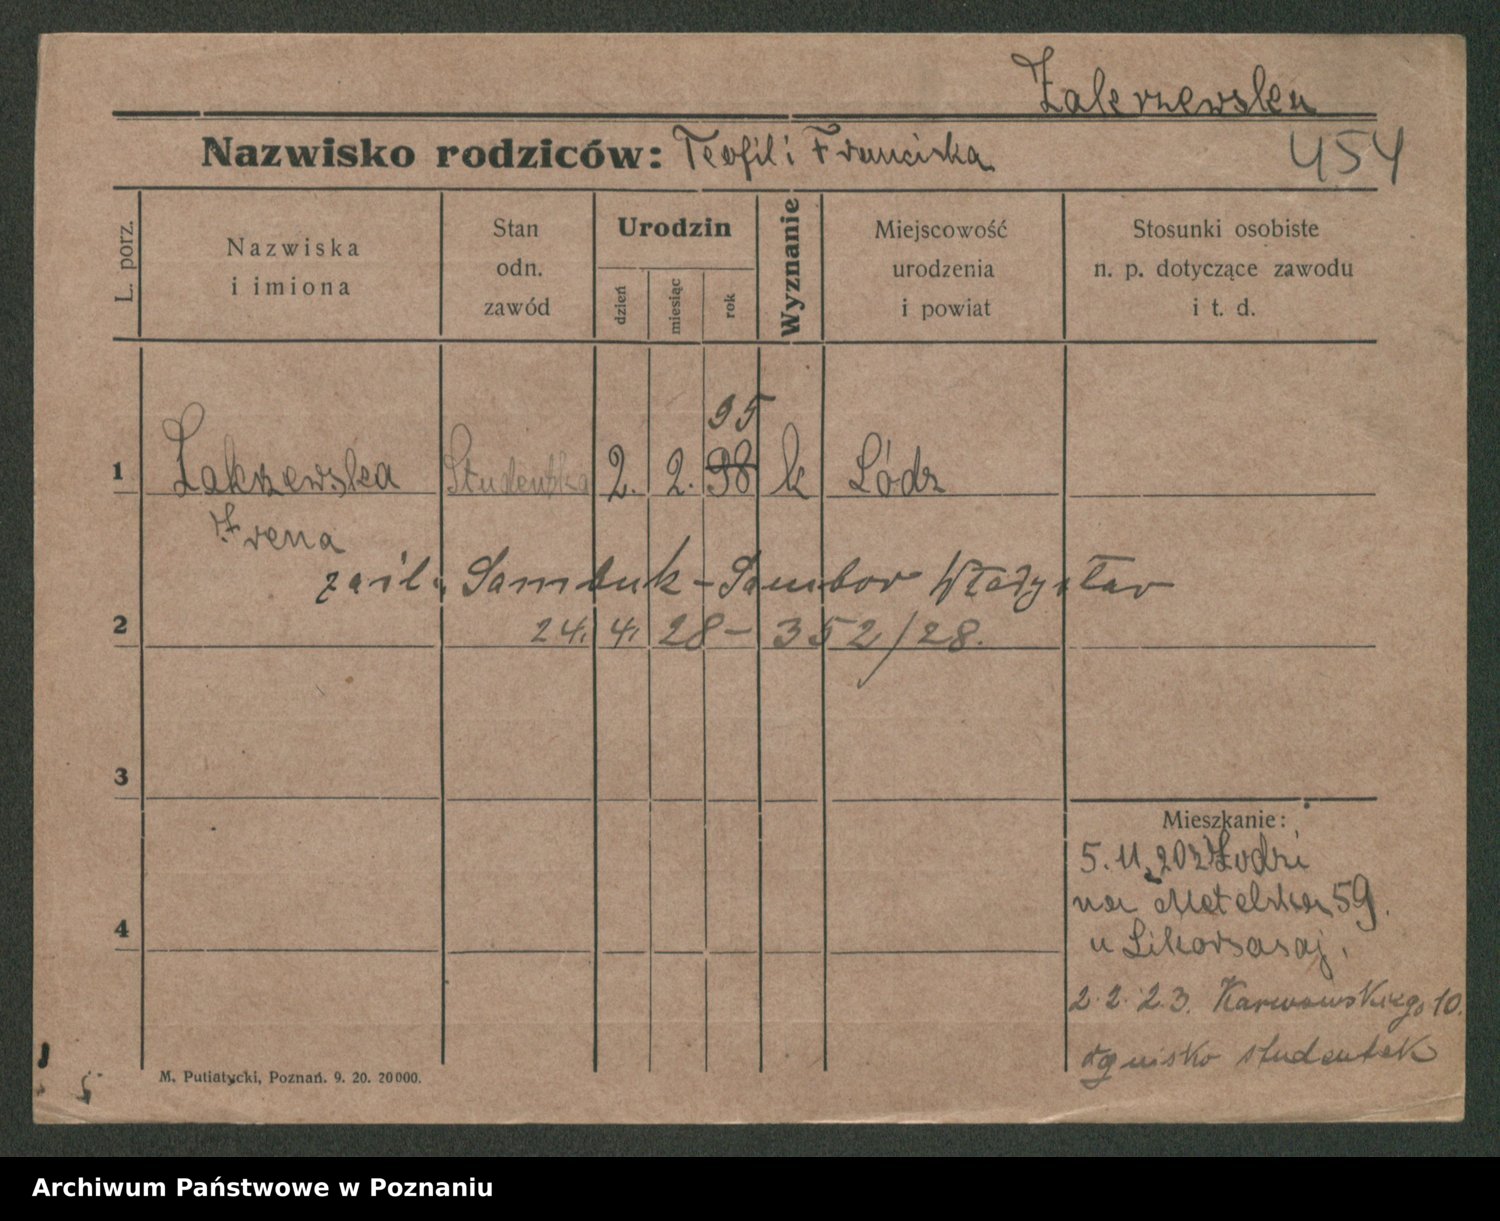 Zakrzewska
Nazwisko rodziców: Teofil i Franciska
454
L. porz.
Nazwiska
i imiona
Stan
odn.
zawód
Urodzin
dzień
miesiąc
rok
Wyznanie
Miejscowość
urodzenia
i powiat
Stosunki osobiste
n. p. dotyczące zawodu
i t. d.
95
1 Zakrzewska Studentka 2. 2. 98 k Łódz
Irena
zaśl. Sambuk-Sambor Władysław
2 24. 4. 28 - 352/28.
3
Mieszkanie:
5. 11. 20 z Łodzi
na Metelska 59.
4
u Sikorsasaj.
2. 2. 23. Karwowskiego 10.
ognisko studentek
M. Putiatycki, Poznań. 9. 20. 20000.
Archiwum Państwowe w Poznaniu